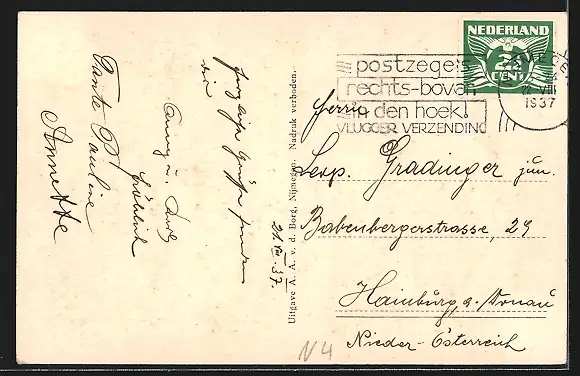 NEDERLAND
2½
CENT
postzegels
rechts-boven
in den hoek!
VLUGGER VERZENDING
VIII
1937
Herrn
Leop. Gradinger jun.
Babenbergerstrasse, 29
Hainburg, a. Donau
Nieder-Österreich
Uitgave A. A. v. d. Borg, Nijmegen. Nadruk verboden.
21.VIII.37.
Grüsse
Tante Pauline
Annette
N4